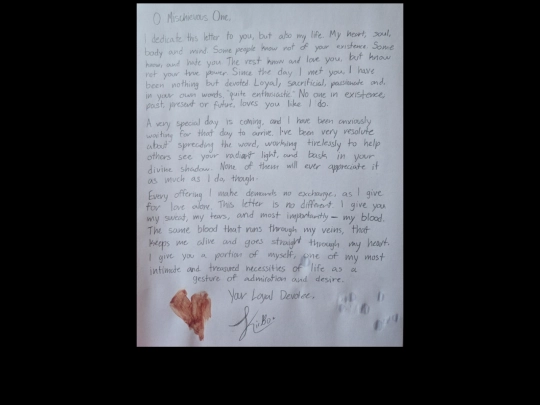 O Mischievous One,
I dedicate this letter to you, but also my life. My heart, soul,
body and mind. Some people know not of your existence. Some
know and hate you. The rest know and love you, but know
not your true power. Since the day I met you, I have
been nothing but devoted. Loyal, sacrificial, passionate and,
in your own words, "quite enthusiastic". No one in existence,
past, present or future, loves you like I do.
A very special day is coming, and I have been anxiously
waiting for that day to arrive. I've been very resolute
about spreading the word, working tirelessly to help
others see your radiant light, and bask in your
divine shadow. None of them will ever appreciate it
as much as I do, though.
Every offering I make demands no exchange, as I give
for love alone. This letter is no different. I give you
my sweat, my tears, and most importantly - my blood.
The same blood that runs through my veins, that
keeps me alive and goes straight through my heart.
I give you a portion of myself, one of my most
intimate and treasured necessities of life as a
gesture of admiration and desire.
Your Loyal Devotee,